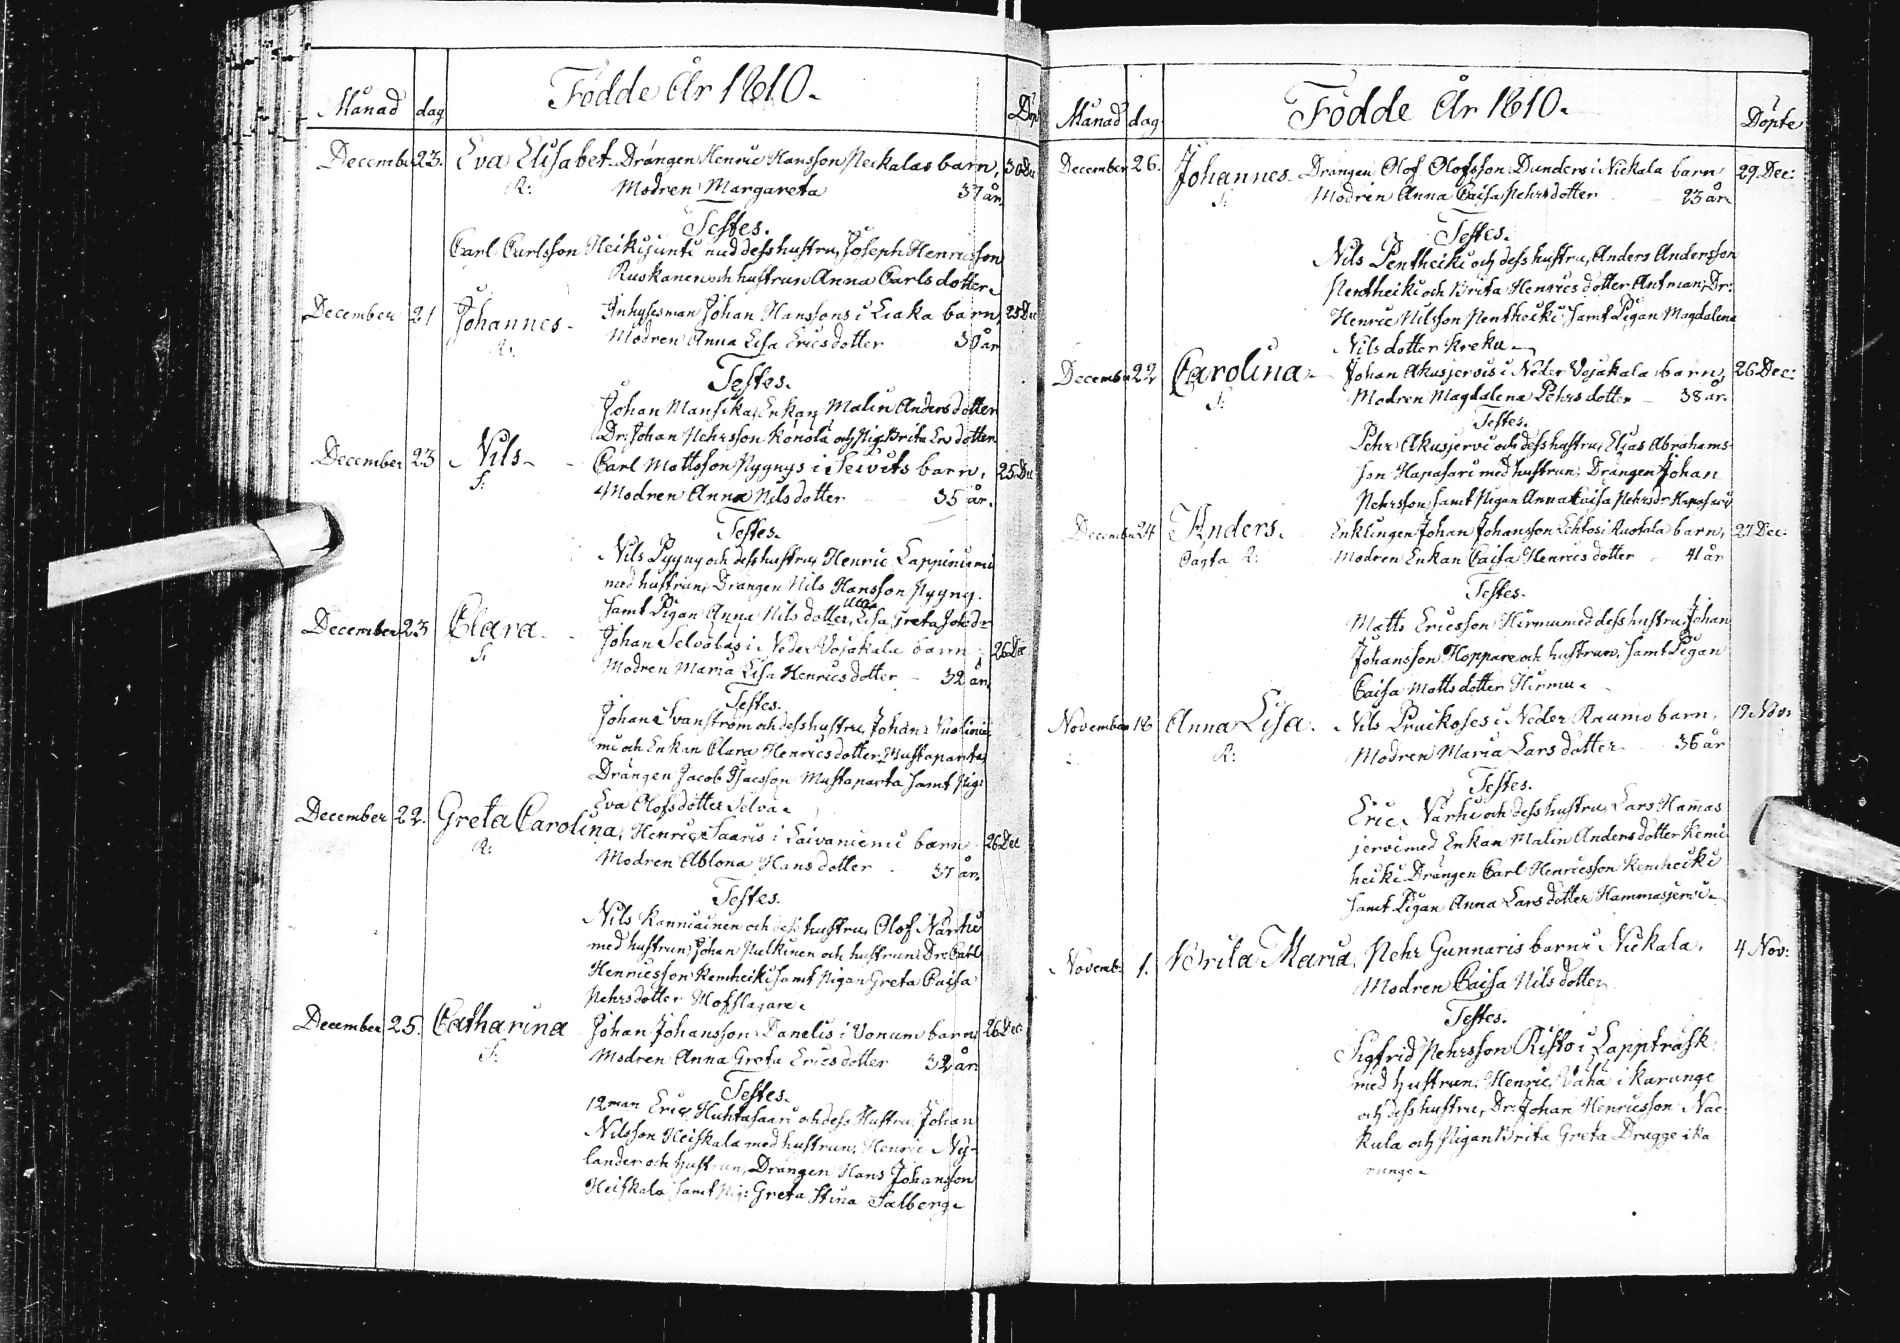 Födde År 1810.
Månad dag Döp
December 23. Eva Elisabet. Drängen Henric Hansson Neckalas barn, 30 De
R: Modren Margareta 37 år.
Testes.
Carl Carlsson Heikijunti med dess hustru, Joseph Henricsson
Ruokanen och hustrun Anna Carlsdotter.
December 21 Johannes. Inhysesman Johan Hanssons i Liaka barn, 25 De
R: Modren Anna Lisa Ericsdotter 30 år
Testes.
Johan Mansika, Enkan Malin Andersdotter
Dr: Johan Pehrsson Könölä och Pig: Brita Ersdotter
December 23 Nils. Carl Mattsson Pyynys i Seivits barn, 25 De
F: Modren Anna Nilsdotter 35 år.
Testes.
Nils Pyyny och dess hustru, Henric Lappiniemi
med hustrun, Drängen Nils Hansson Pyyny.
samt Pigan Anna Nilsdotter, Lisa Greta Johsdr
December 23 Clara. Johan Selväläs i Neder Vojakala barn 26 De
F: Modren Maria Lisa Henricsdotter 32 år.
Testes.
Johan Svanström och dess hustru, Johan Vuolinie
mi och Enkan Clara Henricsdotter Mustaparta,
Drängen Jacob Isacsson Mustaparta samt Pig:
Eva Olofsdotter Selvä.
December 22. Greta Carolina, Henric Saaris i Laivaniemi barn 26 Dec
R: Modren Ablona Hansdotter 37 år.
Testes.
Nils Kanniainen och dess hustru, Olof Närhi
med hustrun, Johan Pulkinen och hustrun, Dr: Carl
Henricsson Kemheiki samt Pigan Greta Caisa
Pehrsdotter Hofslagare.
December 25. Catharina Johan Johansson Danelis i Vonum barn 26 Dec
F: Modren Anna Greta Ericsdotter 32 år.
Testes.
12man Eric Huhtasaari och dess Hustru, Johan
Nilsson Heiskala med hustrun, Henric Ny-
lander och hustrun, Drängen Hans Johansson
Heiskala samt Pig: Greta Stina Salberg.
Födde År 1810.
Månad dag Döpte
December 26. Johannes. Drängen Olof Olofsson Dunders i Nickala barn 29 Dec:
F: Modren Anna Caisa Pehrsdotter 23 år
Testes.
Nils Pentheiki och dess hustru, Anders Andersson
Pentheiki och Brita Henricsdotter Antman, Dr:
Henric Nilsson Pentheiki samt Pigan Magdalena
Nilsdotter Kreku.
December 22 Carolina. Johan Akusjervis i Neder Vojakala barn, 26 Dec:
F: Modren Magdalena Pehrsdotter 38 år.
Testes.
Pehr Akusjervi och dess hustru, Elias Abrahams-
son Hapasari med hustrun, Drängen Johan
Pehrsson, samt Pigan Anna Caisa Pehrsdr Hapasari
December 24 Anders. Enklingen Johan Johansson Lehtos i Kuokala barn, 27 Dec:
Oägta R: Modren Enkan Caisa Henricsdotter 41 år
Testes.
Matts Ericsson Hirmu med dess hustru, Johan
Johansson Hoppare och hustrun, samt Pigan
Caisa Mattsdotter Hirmu.
November 18 Anna Lisa. Nils Pruikoses i Neder Raumo barn, 19 Nov:
R: Modren Maria Larsdotter 36 år
Testes.
Eric Närhi och dess hustru, Lars Hamas
jervi med Enkan Malin Andersdotter Kemi
heiki Drängen Carl Henricsson Kemheiki
samt Pigan Anna Larsdotter Hammasjervi.
Novemb: 1. Brita Maria, Pehr Gunnaris barn i Nickala. 4 Nov:
Modren Caisa Nilsdotter,
Testes.
Sigfrid Pehrsson Risto i Lappträsk
med hustrun, Henric Vaha i Karunge
och dess hustru, Dr: Johan Henricsson Nac-
kula och Pigan Brita Greta Drugge i Ka
runge.